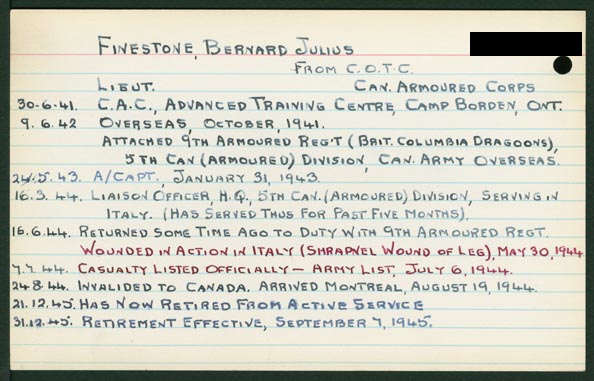 FINESTONE, BERNARD JULIUS
FROM C.O.T.C.
LIEUT. CAN. ARMOURED CORPS
30-6-41. C.A.C., ADVANCED TRAINING CENTRE, CAMP BORDEN, ONT.
9. 6. 42 OVERSEAS, OCTOBER, 1941.
ATTACHED 9TH ARMOURED REG'T (BRIT. COLUMBIA DRAGOONS),
5TH CAN (ARMOURED) DIVISION, CAN. ARMY OVERSEAS.
24.5. 43. A/CAPT., JANUARY 31, 1943.
16.3. 44. LIAISON OFFICER, H.Q., 5TH CAN. (ARMOURED) DIVISION, SERVING IN
ITALY. (HAS SERVED THUS FOR PAST FIVE MONTHS).
16.6.44. RETURNED SOME TIME AGO TO DUTY WITH 9TH ARMOURED REGT.
WOUNDED IN ACTION IN ITALY (SHRAPNEL WOUND OF LEG), MAY 30, 1944
7.7. 44. CASUALTY LISTED OFFICIALLY - ARMY LIST, JULY 6, 1944.
24.8.44. INVALIDED TO CANADA. ARRIVED MONTREAL, AUGUST 19, 1944.
21.12.45. HAS NOW RETIRED FROM ACTIVE SERVICE
31.12.45. RETIREMENT EFFECTIVE, SEPTEMBER 7, 1945.